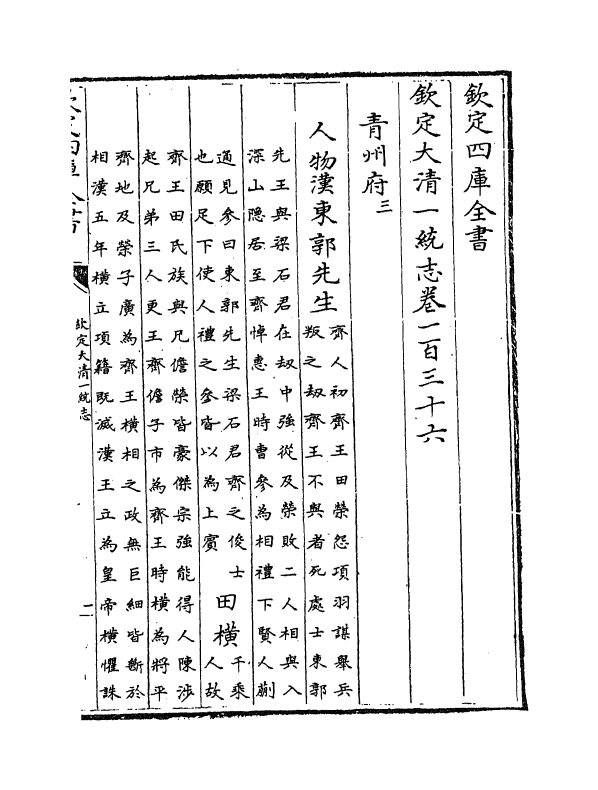 欽定四庫全書
欽定大清一統志卷一百三十六
青州府三
人物漢東郭先生
齊人初齊王田榮怨項羽謀舉兵
叛之劫齊王不與者死處士東郭
先王與梁石君在劫中強從及榮敗二人相與入
深山隱居至齊悼惠王時曹參為相禮下賢人蒯
通見參曰東郭先生梁石君齊之俊士
也願足下使人禮之參皆以為上賓
田橫
千乘
人故
齊王田氏族與兄儋榮皆豪傑宗強能得人陳涉
起兄弟三人更王齊儋子市為齊王時橫為將平
齊地及榮子廣為齊王橫相之政無巨細皆斷於
相漢五年橫立項籍既滅漢王立為皇帝橫懼誅
欽定大清一統志